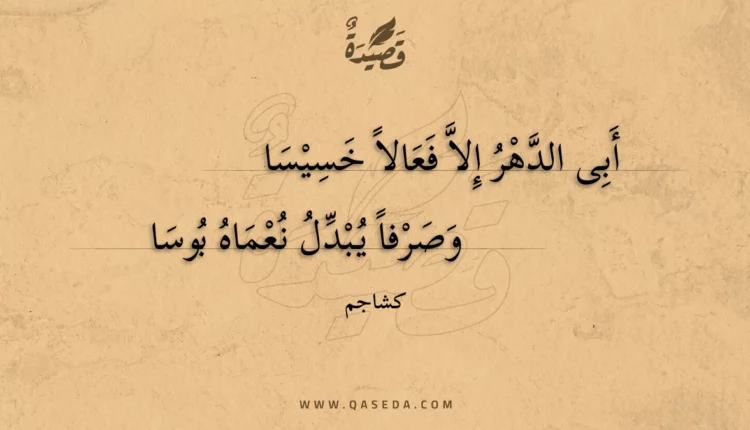 قَصِيْدَةٌ
أَبِى الدَّهْرُ إِلاَّ فَعَالاً خَسِيْسَا
وَصَرْفاً يُبْدِّلُ نُعْمَاهُ بُوسَا
كشاجم
WWW.QASEDA.COM